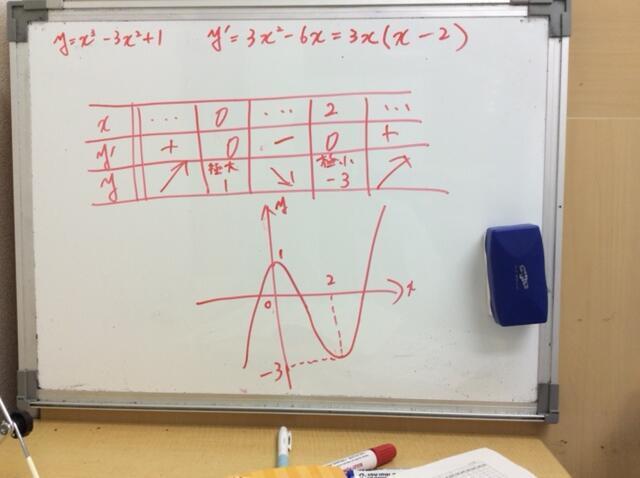 y=x³-3x²+1 y'=3x²-6x=3x(x-2)
x … 0 … 2 …
y' + 0 - 0 +
y ↗ 極大 1 ↘ 極小 -3 ↗
y
1
0 2 x
-3